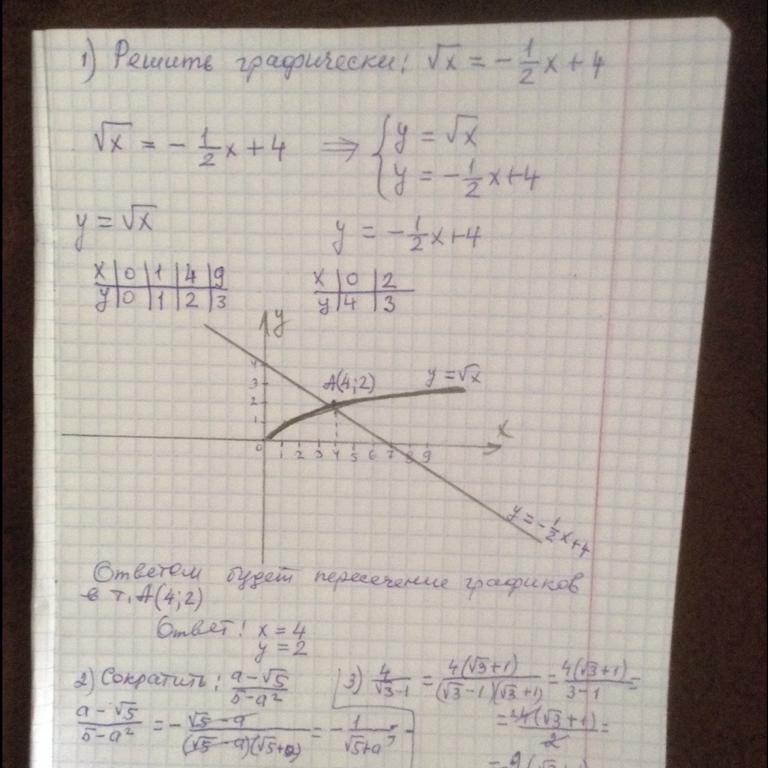 1) Решить графически: √x = -1/2x + 4
√x = -1/2x + 4 ⟹ { y = √x
y = -1/2x + 4
y = √x y = -1/2x + 4
x | 0 | 1 | 4 | 9 x | 0 | 2
y | 0 | 1 | 2 | 3 y | 4 | 3
y
4
3 A(4;2) y = √x
2
1 x
0 1 2 3 4 5 6 7 8 9
y = -1/2x + 4
Ответом будет пересечение графиков
в т. A(4;2)
Ответ: x = 4
y = 2
2) Сократить: (a - √5)/(5 - a²)
(a - √5)/(5 - a²) = -(√5 - a)/((√5 - a)(√5 + a)) = -1/(√5 + a)
3) 4/(√3 - 1) = 4(√3 + 1)/((√3 - 1)(√3 + 1)) = 4(√3 + 1)/(3 - 1) =
= 4(√3 + 1)/2 =